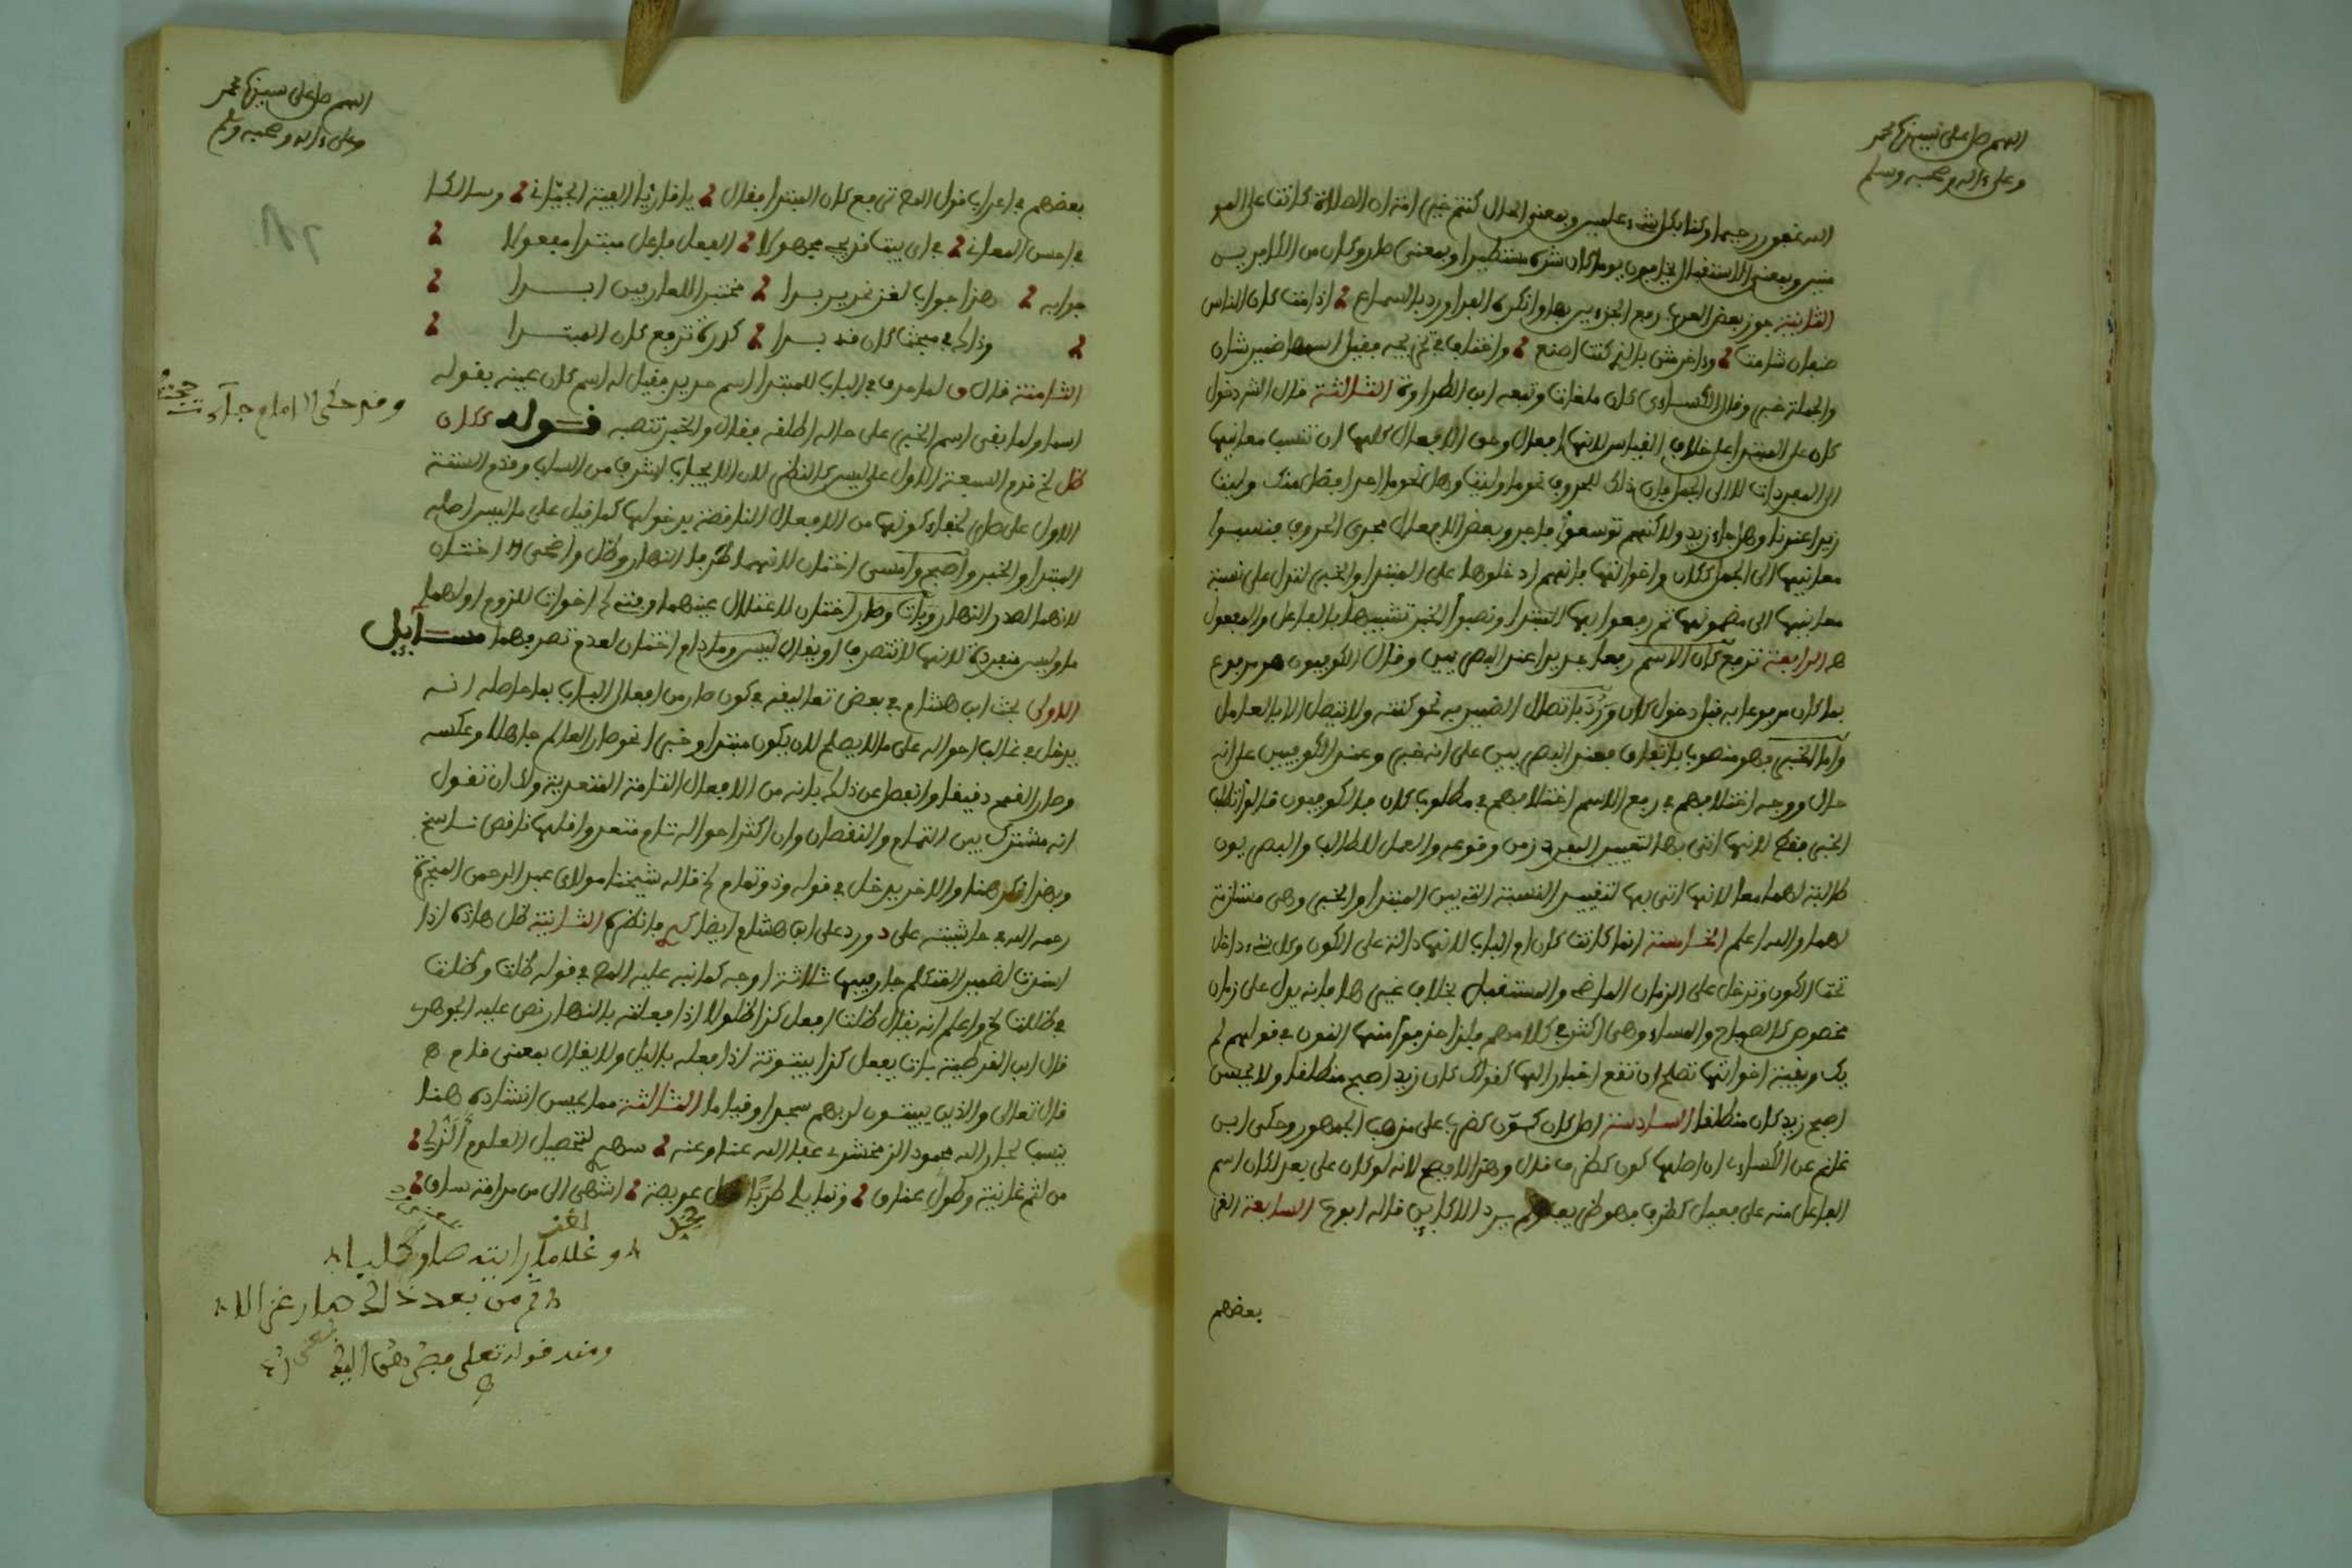 اللهم صل على نبينا محمد
وعلى ءاله وصحبه وسلم
الله غفورا رحيما وكنا بكل شيء عالمين وبمعنى الحال كنتم خير امة ان الصلاة كانت على المو
منين وبمعنى الاستقبال يخافون يوما كان شره مستطيرا وبمعنى صار وكان من الكافرين
الثانية جوز بعض العرب رفع الجزءين بها وانكره الفراء ورد بالسماع اذا مت كان الناس
صنفان شامت وءاخر مثن بالذي كنت اصنع واختلف في تخريجه فقيل اسمها ضمير شان
والجملة خبر وقال الكسائي كان ملغاة وتبعه ابن الطراوة الثالثة قال الش دخول
كان على المبتدا على خلاف القياس لانها افعال وحق الافعال كلها ان تنسب معانيها
الى المفردات لا الى الجمل فان ذلك للحروف نحو ما وليت وهل نحو ما احد افضل منك وليت
زيدا عندنا وهل جاء زيد ولاكنهم توسعوا فاجروا بعض الافعال مجرى الحروف فنسبوا
معانيها الى الجمل ككان واخواتها فانهم ادخلوها على المبتدا والخبر لتدل على نسبة
معانيها الى مضمونها ثم رفعوا بها المبتدا ونصبوا الخبر تشبيها بالفاعل والمفعول
الرابعة ترفع كان الاسم رفعا جديدا عند البصريين وقال الكوفيون هو مرفوع
بما كان مرفوعا به قبل دخول كان ورد باتصال الضمير به نحو كنته ولا يتصل الا بالعامل
واما الخبر فهو منصوب باتفاق فعند البصريين على انه خبر وعند الكوفيين على انه
حال ووجه اختلافهم في رفع الاسم اختلافهم في مطلوب كان فالكوفيون قالوا تطلب
الخبر فقط لانها اتى بها لتعيين زمن وقوعه والعمل للطالب والبصريون
طالبة لهما معا لانها اتى بها لتفيد النسبة التي بين المبتدا والخبر وهي مستلزمة
لهما والله اعلم الخامسة انما كانت كان ام الباب لانها دالة على الكون وكل شيء داخل
تحت الكون وتدخل على الزمان الماضي والمستقبل بخلاف غيرها فانه يدل على زمان
مخصوص كالصباح والمساء وهي اكثر في كلامهم فلذا حذفوا منها النون في قولهم لم
يك وبقية اخواتها تصلح ان تقع اخبارا لها كقولك كان زيد اصبح منطلقا ولا يحسن
اصبح زيد كان منطلقا السادسة اصل كان كون كضرب على مذهب الجمهور وحكى ابن
غانم عن الكسائي ان اصلها كون كظرف قال وهذا لا يصح لانه لو كان على فعل لكان اسم
الفاعل منه على فعيل كظرف فهو ظريف سرد الاكابر قاله ابوح السابعة الغز
بعضهم
اللهم صل على سيدنا محمد
وعلى ءاله وصحبه وسلم
بعضهم في اعراب قول المص ترفع كان المبتدا فقال يا قارئا الفية الجياني وسالكا
في احسن المعاني في اي بيت قد يجي مجهولا الفعل فاعل مبتدا مفعولا
جوابه هذا جواب لغز نحرير بدا مختبرا للعارفين ابدا
وذاك في مبحث كان قد بدا كدرة ترفع كان المبتدا
الثامنة قال ق لما حدث في الباب للمبتدا اسم جديد فقيل له اسم كان عينه بقوله
اسما ولما بقي اسم الخبر على حاله اطلقه فقال والخبر تنصبه قوله ككان
ظل الخ قدم السبعة الاول على ليس كالناظم لان الايجاب اشرف من السلب وقدم الستة
الاول على صار لخفاء كونها من الافعال الناقصة بدخولها كما قيل على ما ليس اصله
المبتدا والخبر واصبح وامسى اختان لانهما طرفا النهار وظل واضحى اختان
لانهما لصدر النهار وبات وصار اختان لاعتلال عينهما وفتئ الخ اخوات للزوم اولهما
ما وليس منفردة لانها لا تتصرف او يقال ليس وما دام اختان لعدم تصرفهما مسائل
الاولى بحث ابن هشام في بعض تعاليقه في كون صار من افعال الباب بما حاصله انه
يدخل في غالب احواله على ما لا يصلح لان يكون مبتدا وخبرا نحو صار العالم جاهلا وعكسه
وصار القمح دقيقا وانفصل عن ذلك بانه من الافعال التامة المتعدية ولك ان تقول
انه مشترك بين التمام والنقصان وان اكثر احواله تام متعد واقلها ناقص ناسخ
وبهذا ذكر هنا والاخر يدخل في قوله وذو تمام الخ قاله شيخنا مولاي عبد الرحمن المنجرة
رحمه الله في حاشيته على د ورد على ابن هشام ايضا فانظره الثانية ظل هاذه اذا
اسندت لضمير المتكلم جاز فيها ثلاثة اوجه كما نبه عليه المص في قوله ظلت وظلت
في ظللت الخ واعلم انه يقال ظلت افعل كذا ظلولا اذا فعلته بالنهار نص عليه الجوهري
قال ابن القوطية بات يفعل كذا بيتوتة اذا فعله بالليل ولا يقال بمعنى نام
قال تعالى والذين يبيتون لربهم سجدا وقياما الثالثة مما يحسن انشاده هنا
ينسب لجار الله محمود الزمخشري عفا الله عنا وعنه سهري لتحصيل العلوم الذ لي
من لثم غانية وطول عناق وتمايلي طربا لحل عويصة اشهى الي من مدامة ساق
وقد حكى الامام جاء
لغز
وغلاما رايته صار كلبا
ثم من بعد ذلك صار غزالا
ومنه قوله تعالى فصرهن اليك